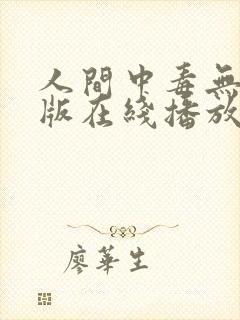 人間中毒無
版在綫播放
廖華生